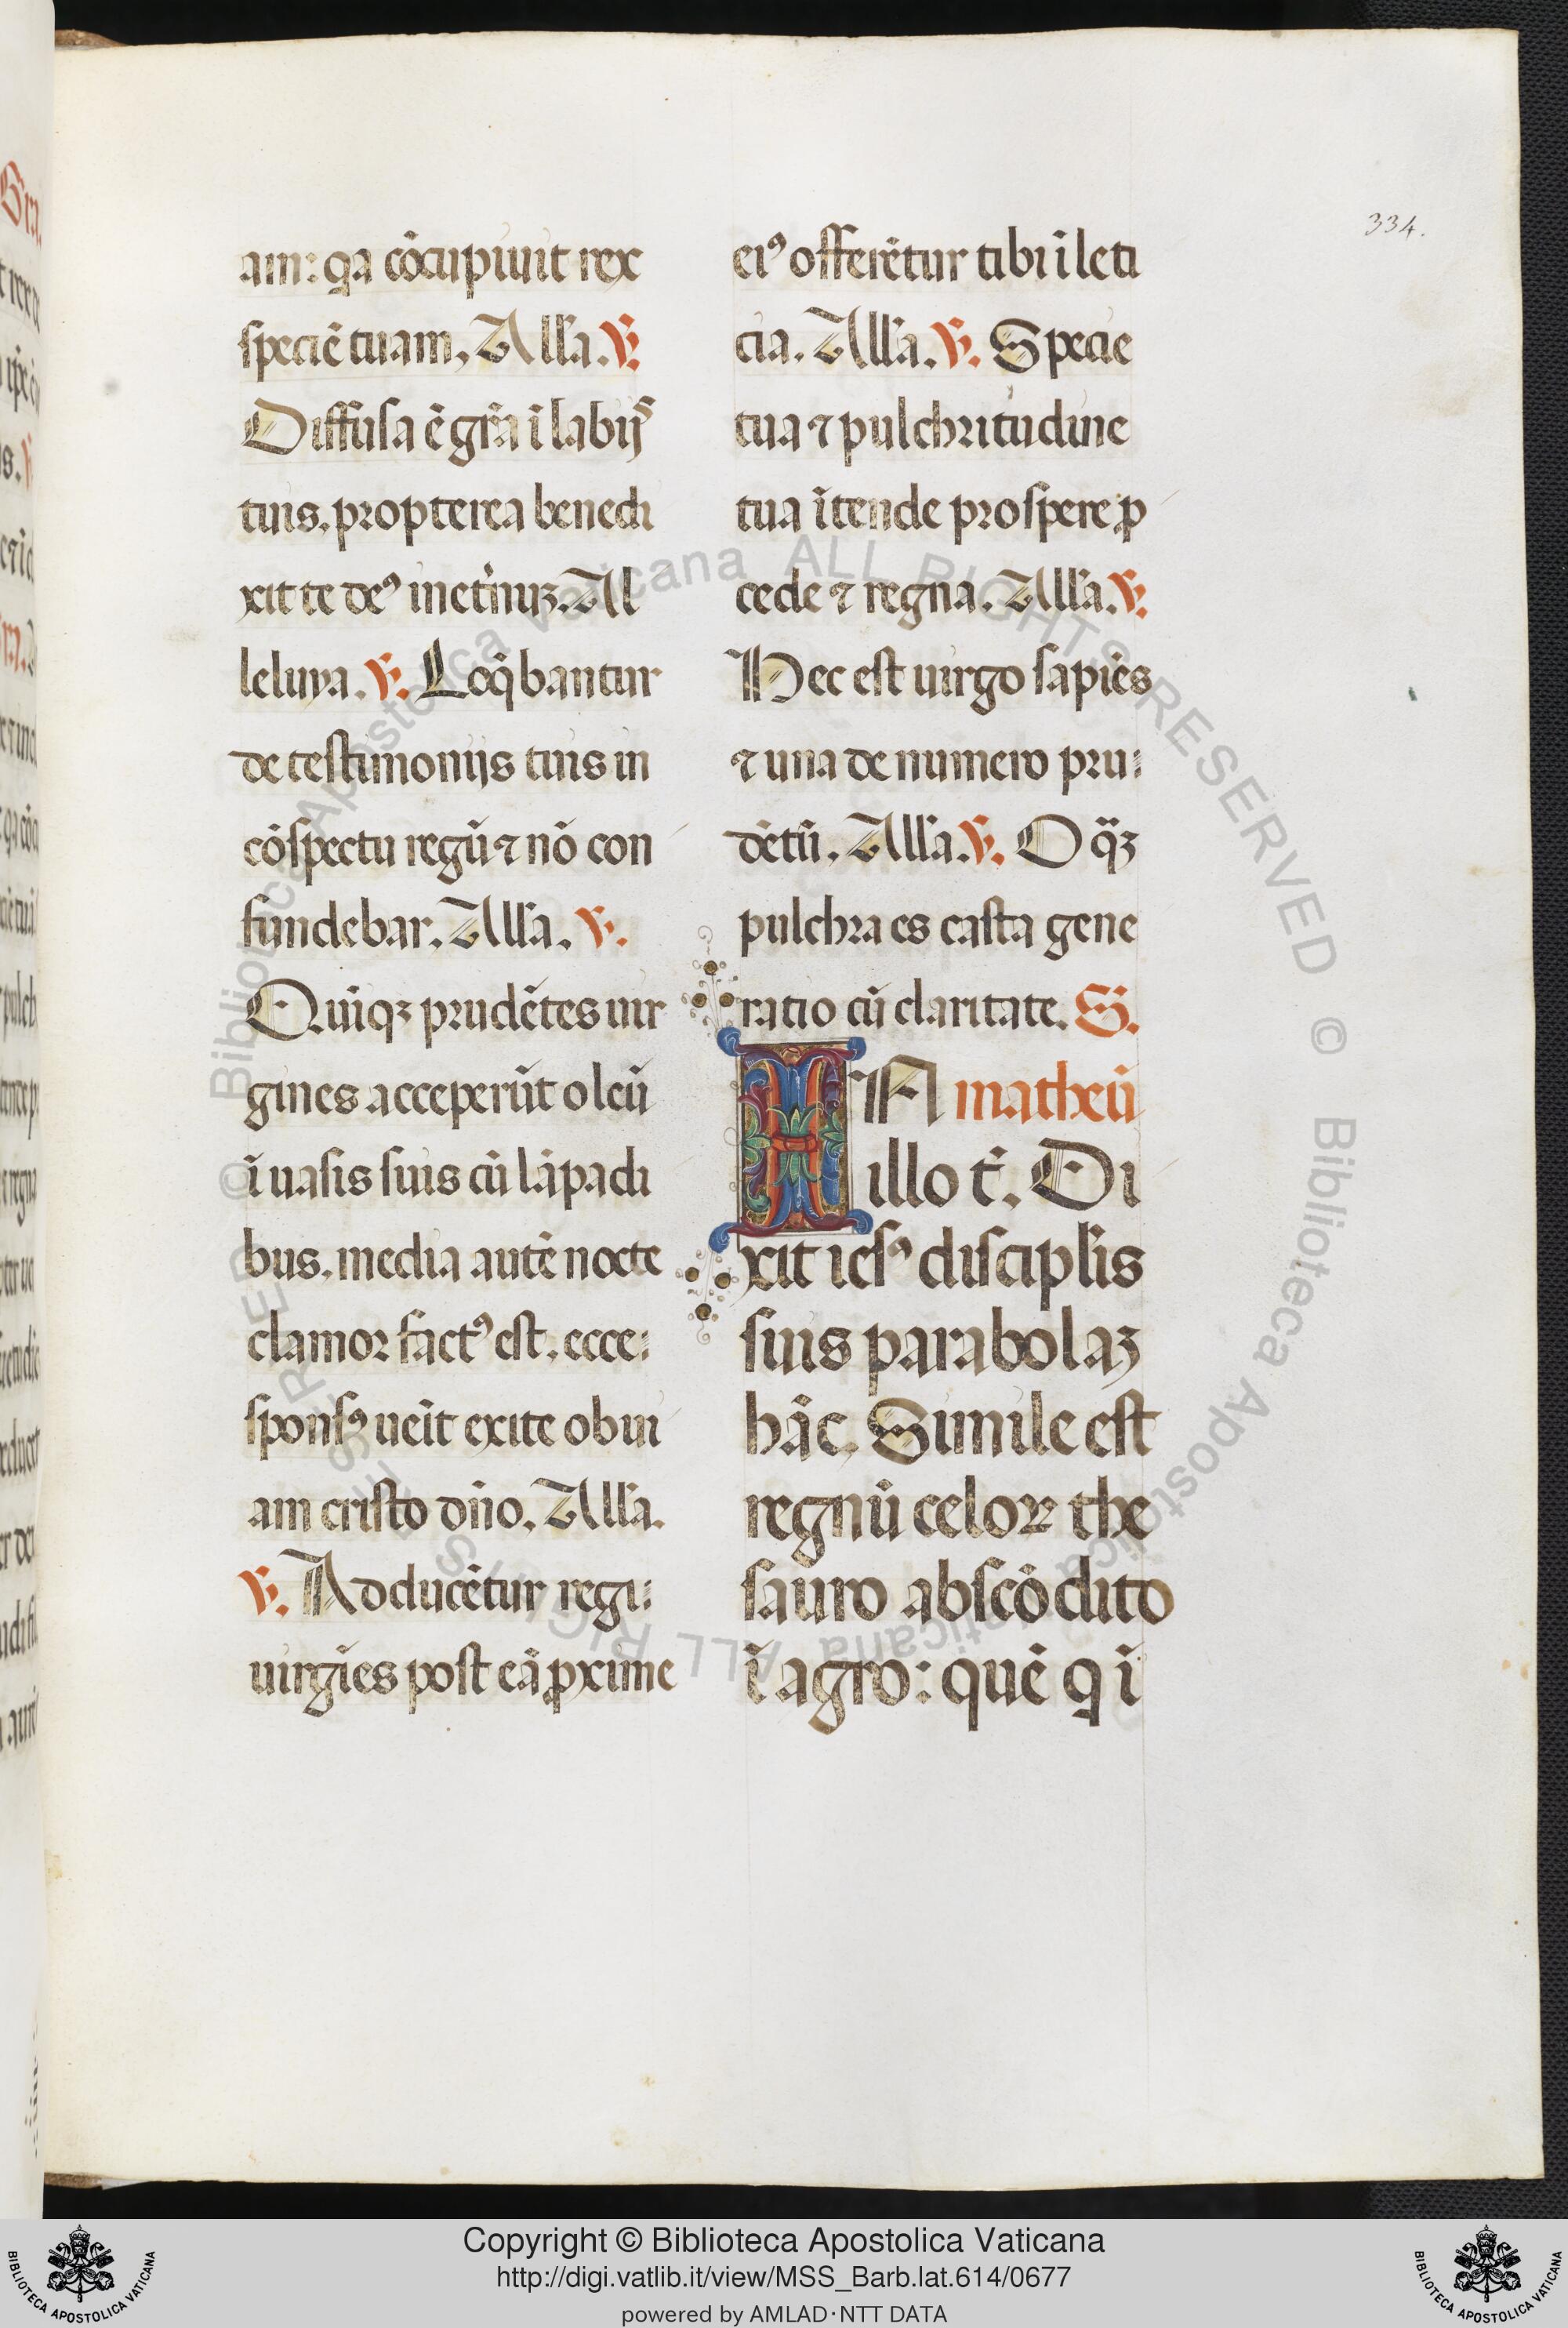 334.
am: qa cōcupiuit rex
speciē tuam, Alla. ℣.
Diffusa ē gr̄a ī labijs
tuis. propterea benedi
xit te deꝰ in et̄nuʒ. Al
leluya. ℣. Loq̄bantur
de testimonijs tuis in
cōspectu regū ⁊ nō con
fundebar. Alla. ℣.
Quīqʒ prudētes uir
gines acceperūt oleū
ī uasis suis cū lāpadi
bus. media autē nocte
clamor factꝰ est. ecce:
sponsꝰ ueīt exite obui
am cristo dn̄o. Alla.
℣. Adducētur regi:
uirgīes post eā ꝓxime
eiꝰ offerētur tibi ī leti
cia. Alla. ℣. Specie
tua ⁊ pulchritudine
tua ītende prospere ꝓ
cede ⁊ regna. Alla. ℣.
Hec est uirgo sapiēs
⁊ una de numero pru:
dētū. Alla. ℣. O q̄ʒ
pulchra es casta gene
ratio cū claritate. S.
IN matheū
illo t̄. Di
xit iesꝰ disciplis
suis parabolaʒ
hāc. Simile est
regnū celoꝝ the
sauro abscōdito
ī agro: quē q ī
Copyright © Biblioteca Apostolica Vaticana
http://digi.vatlib.it/view/MSS_Barb.lat.614/0677
powered by AMLAD·NTT DATA
BIBLIOTECA APOSTOLICA VATICANA
BIBLIOTECA APOSTOLICA VATICANA
© Biblioteca Apostolica Vaticana ALL RIGHTS RESERVED © Biblioteca Apostolica Vaticana ALL RIGHTS RESERVED